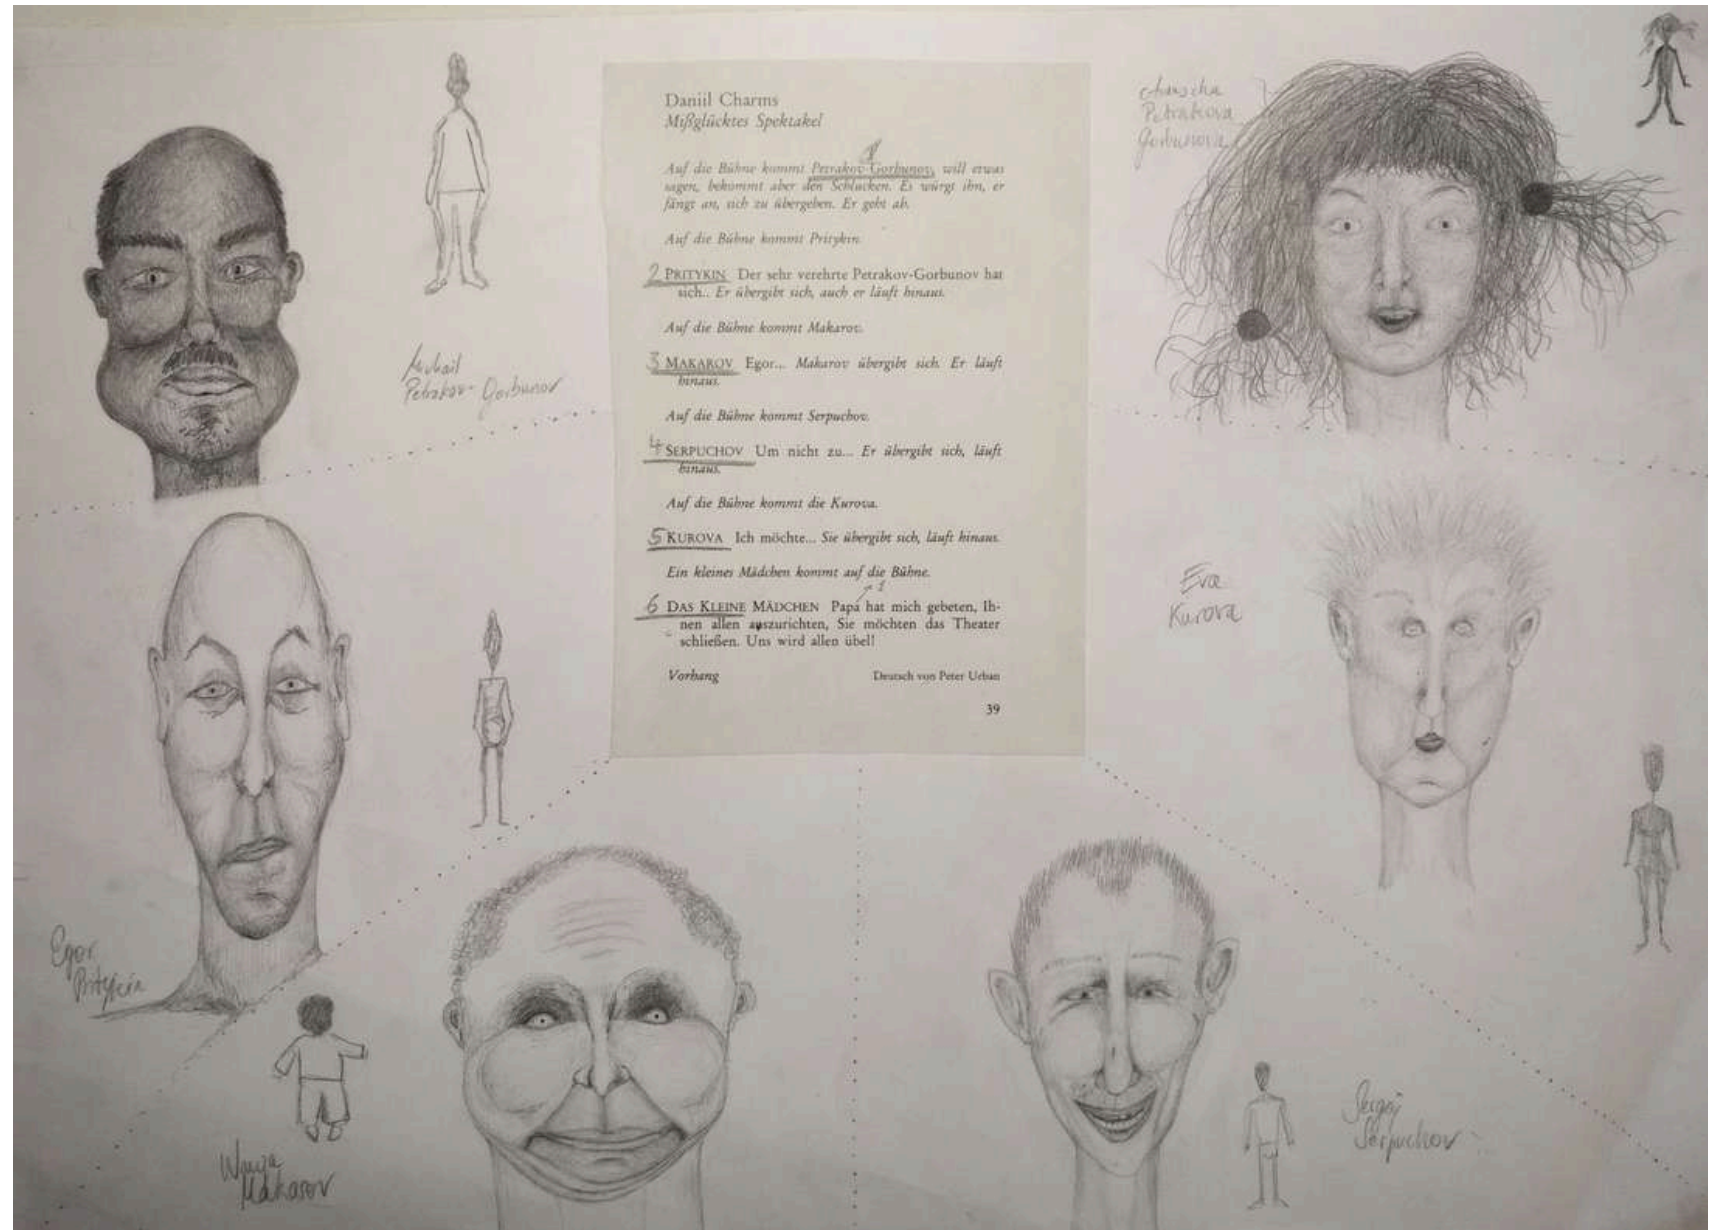 Daniil Charms
Mißglücktes Spektakel
1
Auf die Bühne kommt Petrakov-Gorbunov, will etwas
sagen, bekommt aber den Schlucken. Es würgt ihn, er
fängt an, sich zu übergeben. Er geht ab.
Auf die Bühne kommt Pritykin.
2 PRITYKIN Der sehr verehrte Petrakov-Gorbunov hat
sich.. Er übergibt sich, auch er läuft hinaus.
Auf die Bühne kommt Makarov.
3 MAKAROV Egor... Makarov übergibt sich. Er läuft
hinaus.
Auf die Bühne kommt Serpuchov.
4 SERPUCHOV Um nicht zu... Er übergibt sich, läuft
hinaus.
Auf die Bühne kommt die Kurova.
5 KUROVA Ich möchte... Sie übergibt sich, läuft hinaus.
Ein kleines Mädchen kommt auf die Bühne.
1
6 DAS KLEINE MÄDCHEN Papa hat mich gebeten, Ih-
nen allen auszurichten, Sie möchten das Theater
schließen. Uns wird allen übel!
Vorhang Deutsch von Peter Urban
39
Michail
Petrakov-Gorbunov
Petrakova
Gorbunova
Eva
Kurova
Egor
Pritykin
Makarov
Sergej
Serpuchov